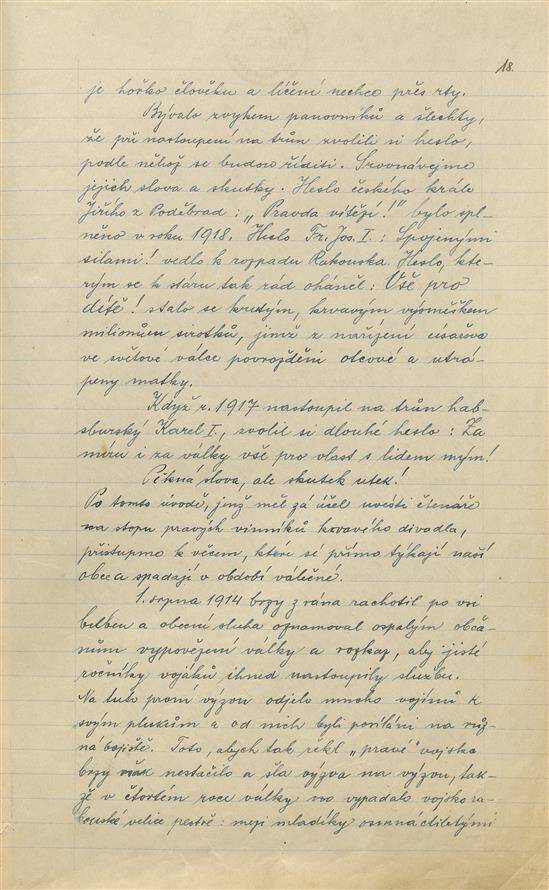 18.
je hořko člověku a líčení nechce přes rty.
Bývalo zvykem panovníků a šlechty,
že při nastoupení na trůn zvolili si heslo,
podle něhož se budou říditi. Srovnávejme
jejich slova a skutky. Heslo českého krále
Jiřího z Poděbrad: „Pravda vítězí!" bylo spl-
něno v roku 1918. Heslo Fr. Jos. I.: Spojenými
silami! vedlo k rozpadu Rakouska. Heslo, kte-
rým se k stáru tak rád oháněl: Vše pro
dítě! stalo se krutým, krvavým výsměškem
milionům sirotků, jimž z nařízení císařova
ve světové válce povražděni otcové a utrá-
peny matky.
Když r. 1917 nastoupil na trůn hab-
sburský Karel I., zvolil si dlouhé heslo: Za
míru i za války vše pro vlast s lidem mým!
Pěkná slova, ale skutek utek!
Po tomto úvodě, jenž měl za účel uvésti čtenáře
na stopu pravých vinníků krvavého divadla,
přistupme k věcem, které se přímo týkají naší
obce a spadají v období válečné.
1. srpna 1914 brzy z rána rachotil po vsi
buben a obecní sluha oznamoval ospalým obča-
nům vypovězení války a rozkaz, aby jisté
ročníky vojáků ihned nastoupily službu.
Na tuto první výzvu odjelo mnoho vojínů k
svým plukům a od nich byli posíláni na růz-
ná bojiště. Toto, abych tak řekl „pravé" vojsko
brzy však nestačilo a šla výzva na výzvu, tak-
že v čtvrtém roce války vypadalo vojsko ra-
kouské velice pestře: mezi mladíky osmnáctiletými